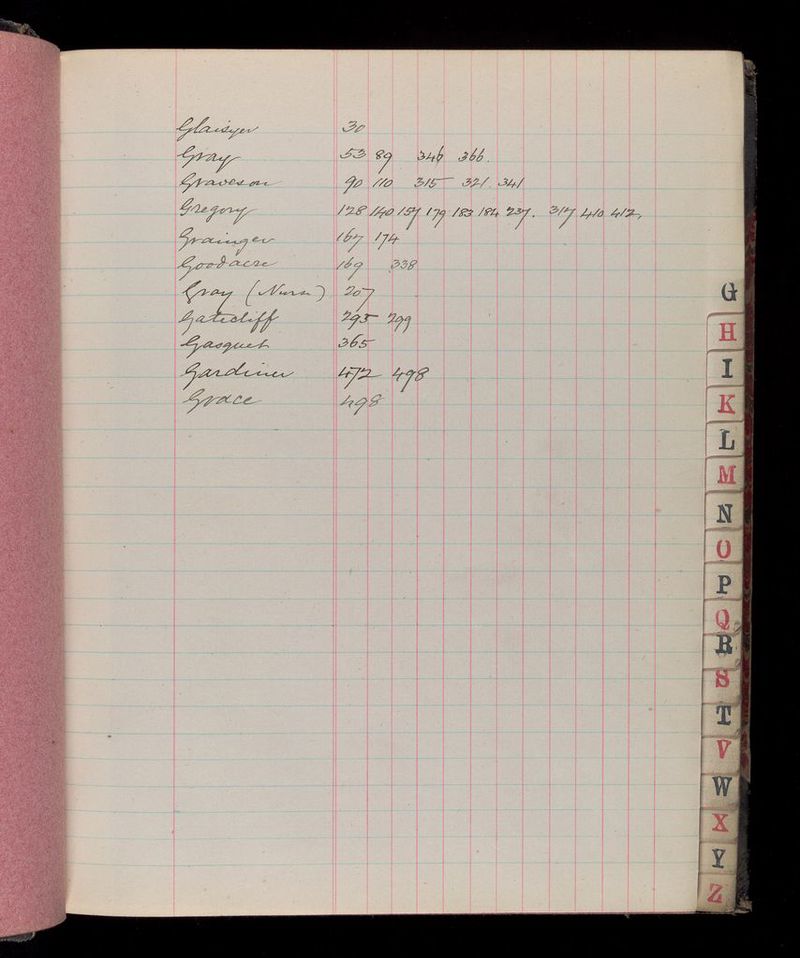 Glaisyer 30
Gray 53 89 346 366.
Graveson 90 110 315 321. 341
Gregory 128 140 157 179 183 184 237. 317 410 412.
Grainger 167 174
Goodacre 169 338
Gray (Nurse) 207
Gatecliff 295 299
Gasquet 365
Gardiner 472 498
Grace 498
G
H
I
K
L
M
N
O
P
Q
R
S
T
V
W
X
Y
Z